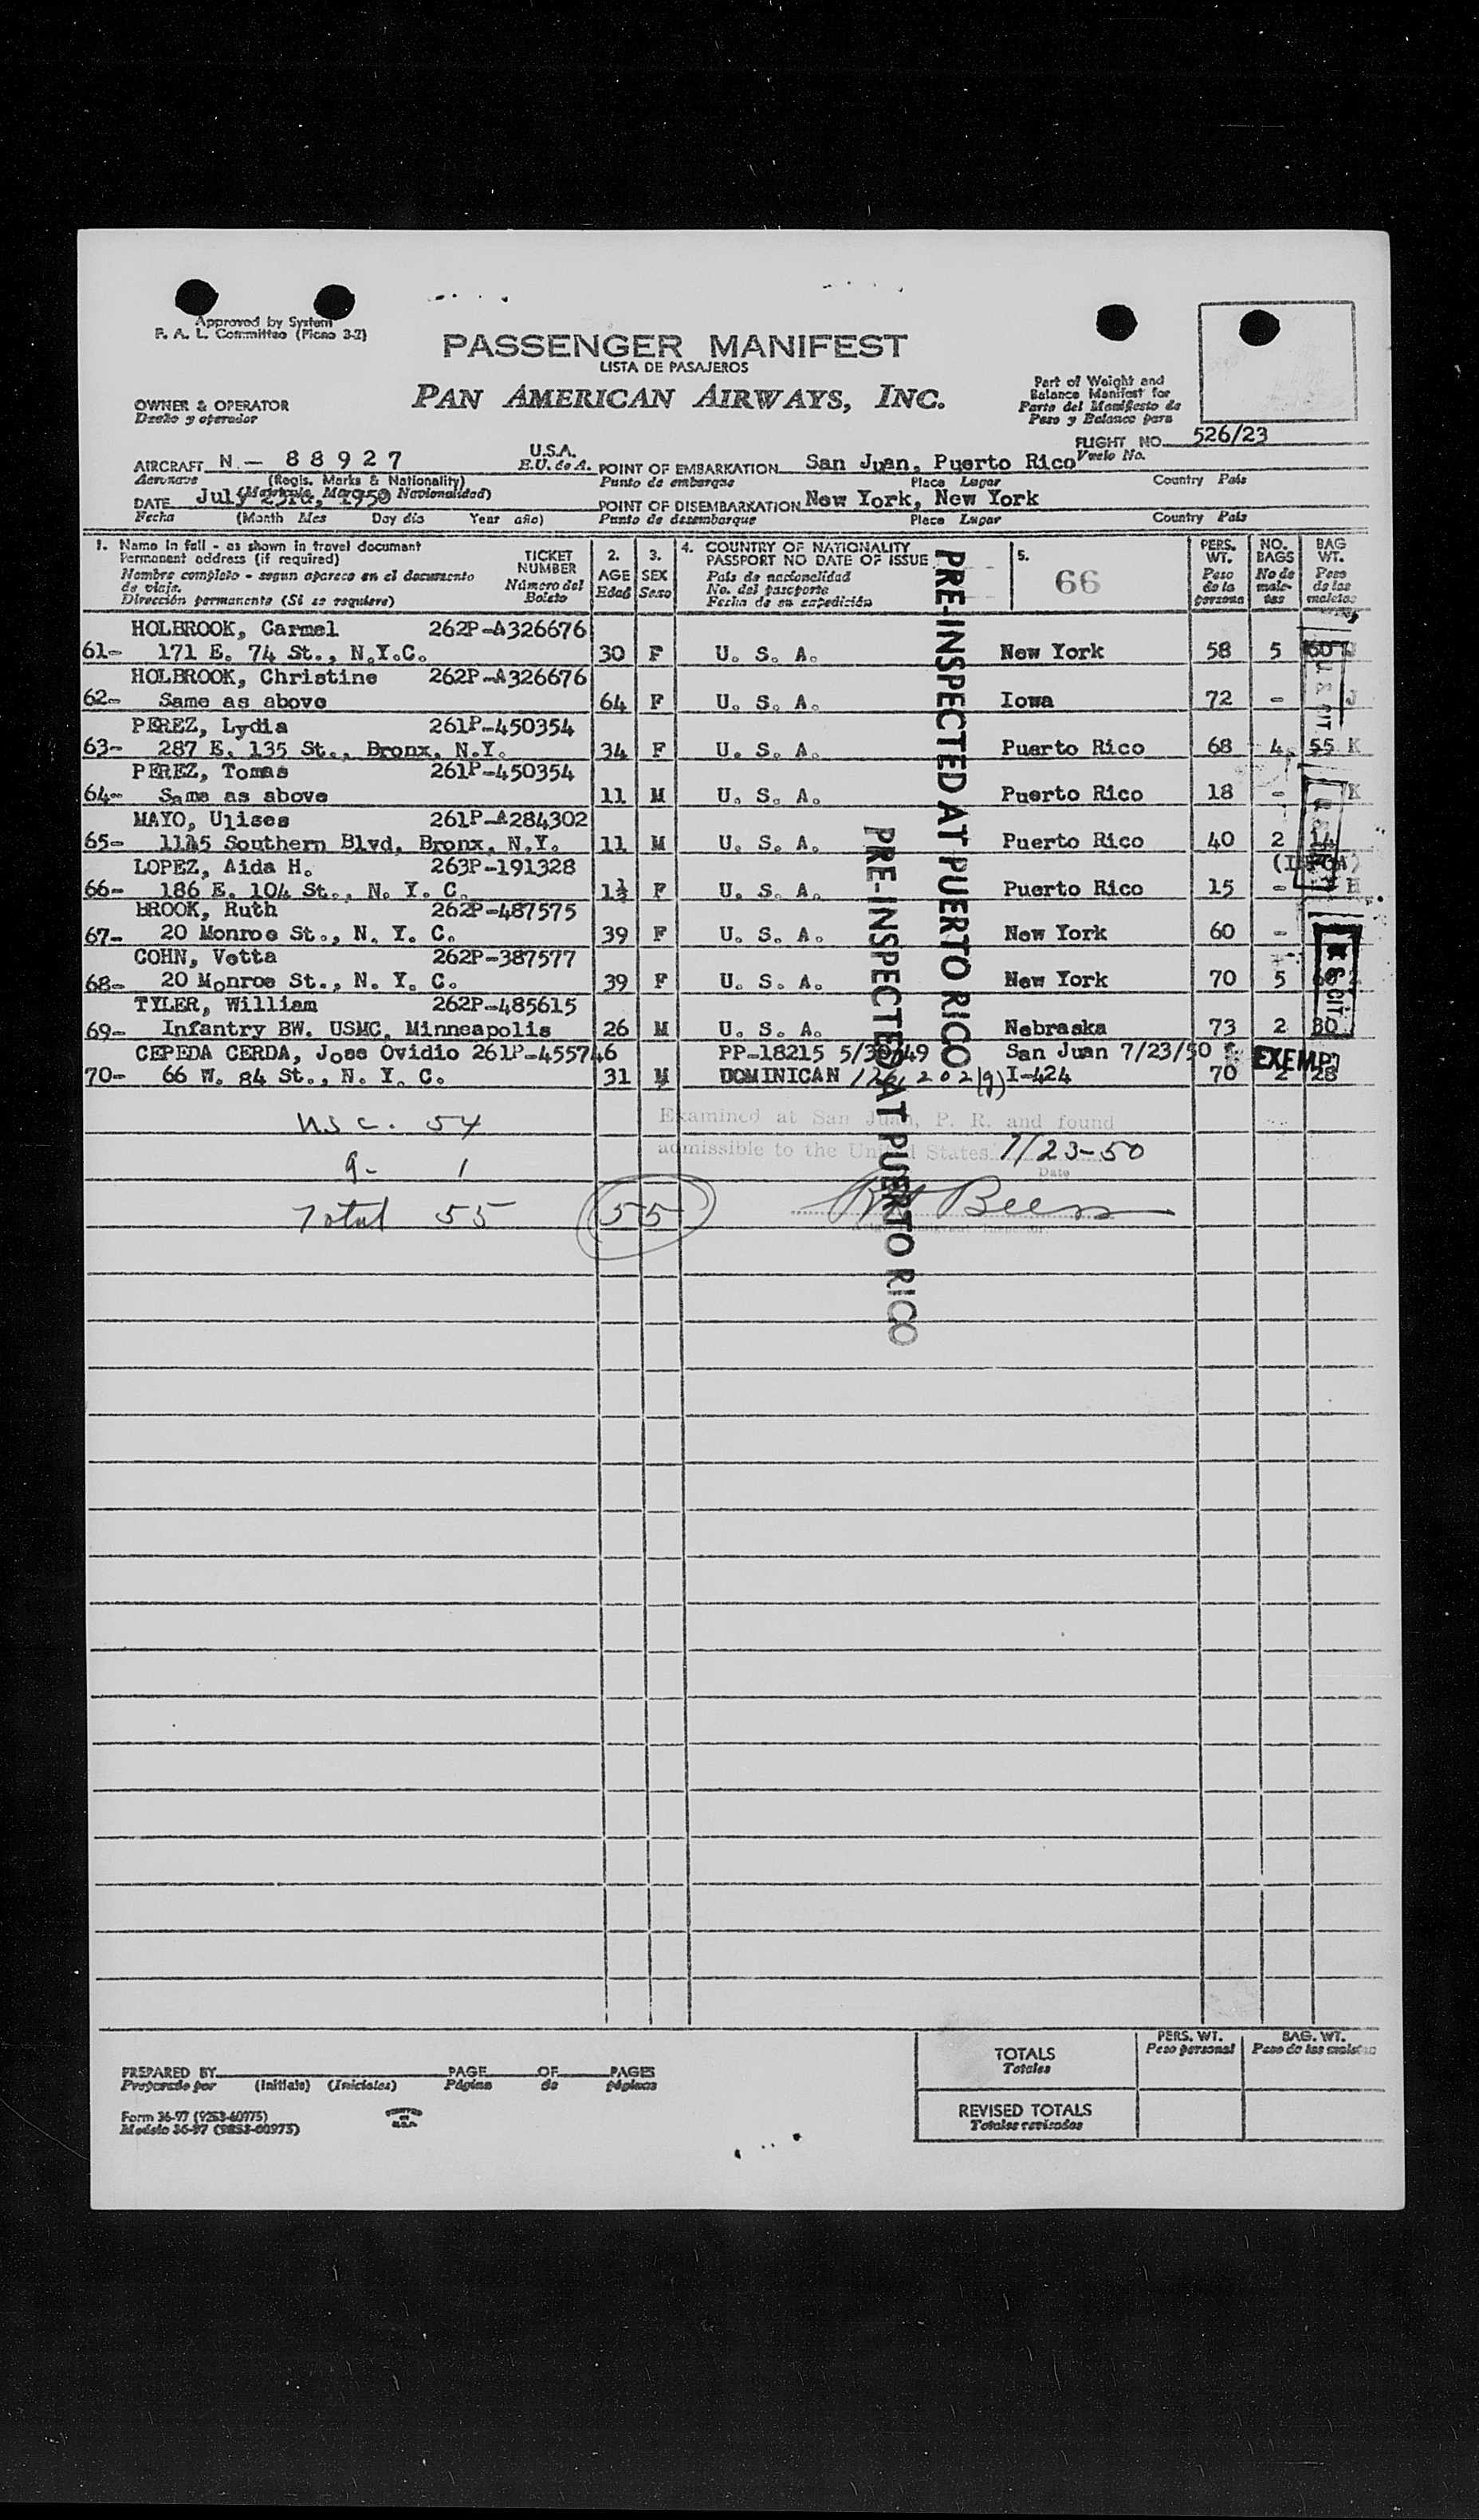 Approved by System
F. A. L. Committee (Picao 3-2)
PASSENGER MANIFEST
LISTA DE PASAJEROS
PAN AMERICAN AIRWAYS, INC.
OWNER & OPERATOR
Dueño y operador
Part of Weight and
Balance Manifest for
Parte del Manifiesto de
Peso y Balance para
FLIGHT NO. 526/23
Vuelo No.
AIRCRAFT N - 88927 U.S.A.
Aeronave (Regis. Marks & Nationality) E.U. de A.
POINT OF EMBARKATION San Juan, Puerto Rico
Punto de embarque Place Lugar Country País
DATE July 23rd, 1950
Fecha (Month Mes Day día Year año)
POINT OF DISEMBARKATION New York, New York
Punto de desembarque Place Lugar Country País
1. Name in full - as shown in travel document
Permanent address (if required)
Nombre completo - segun aparece en el documento
de viaje.
Dirección permanente (Si se requiere)
TICKET
NUMBER
Número del
Boleto
2.
AGE
Edad
3.
SEX
Sexo
4. COUNTRY OF NATIONALITY
PASSPORT NO DATE OF ISSUE
País de nacionalidad
No. del pasaporte
Fecha de su expedición
5.
66
PERS.
WT.
Peso
de la
persona
NO.
BAGS
No de
male-
tas
BAG
WT.
Peso
de las
maletas
HOLBROOK, Carmel 262P-A326676
61- 171 E. 74 St., N.Y.C. 30 F U. S. A. New York 58 5
HOLBROOK, Christine 262P-A326676
62- Same as above 64 F U. S. A. Iowa 72 - J
PEREZ, Lydia 261P-450354
63- 287 E. 135 St., Bronx, N.Y. 34 F U. S. A. Puerto Rico 68 4 55 K
PEREZ, Tomas 261P-450354
64- Same as above 11 M U. S. A. Puerto Rico 18 - K
MAYO, Ulises 261P-A284302
65- 1145 Southern Blvd, Bronx, N.Y. 11 M U. S. A. Puerto Rico 40 2 14
LOPEZ, Aida H. 263P-191328
66- 186 E. 104 St., N. Y. C. 1½ F U. S. A. Puerto Rico 15 - H
BROOK, Ruth 262P-487575
67- 20 Monroe St., N. Y. C. 39 F U. S. A. New York 60 -
COHN, Vetta 262P-387577
68- 20 Monroe St., N. Y. C. 39 F U. S. A. New York 70 5
TYLER, William 262P-485615
69- Infantry BW. USMC, Minneapolis 26 M U. S. A. Nebraska 73 2 30
CEPEDA CERDA, Jose Ovidio 261P-455746 PP-18215 5/30/49 San Juan 7/23/50 EXEMPT
70- 66 W. 84 St., N. Y. C. 31 M DOMINICAN I-424 70 2 28
PRE-INSPECTED AT PUERTO RICO
PRE-INSPECTED AT PUERTO RICO
USC. 54
9- 1
Total 55
55
Examined at San Juan, P. R. and found
admissible to the United States 7/23-50
Date
PREPARED BY (Initials) (Iniciales) PAGE OF PAGES
Preparado por Página de páginas
Form 36-97 (9253-60975)
Modelo 36-97 (9253-60975)
TOTALS
Totales
PERS. WT.
Peso personal
BAG. WT.
Peso de las maletas
REVISED TOTALS
Totales revisados